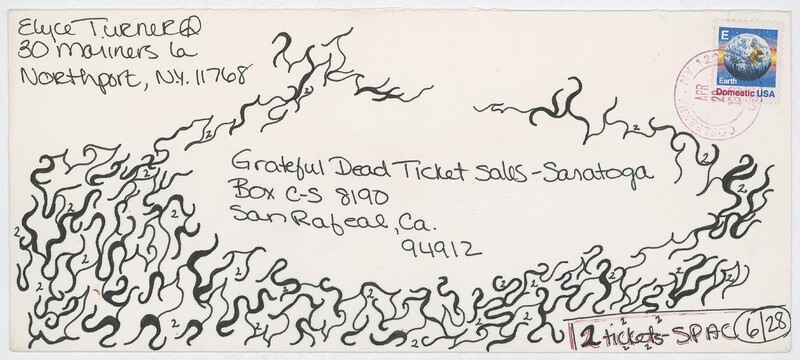 Elyce Turner
30 Mariners La
Northport, N.Y. 11768
E
Earth
Domestic USA
NY 122
APR
Grateful Dead Ticket Sales - Saratoga
Box C-S 8190
San Rafeal, Ca.
94912
2 tickets - SPAC 6/28
2
2
2
2
2
2
2
2
2
2